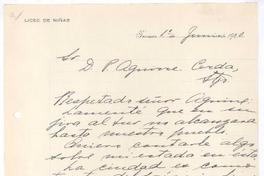 LICEO DE NIÑAS
1º de Junio 1920
Sr
D. P. Aguirre Cerda
Stgo
Respetado señor Aguirre:
Lamenté que en su
jira al sur no alcanzara
hasta nuestro pueblo.
Quiero contarle algo
sobre mi estada en ésta
La ciudad es